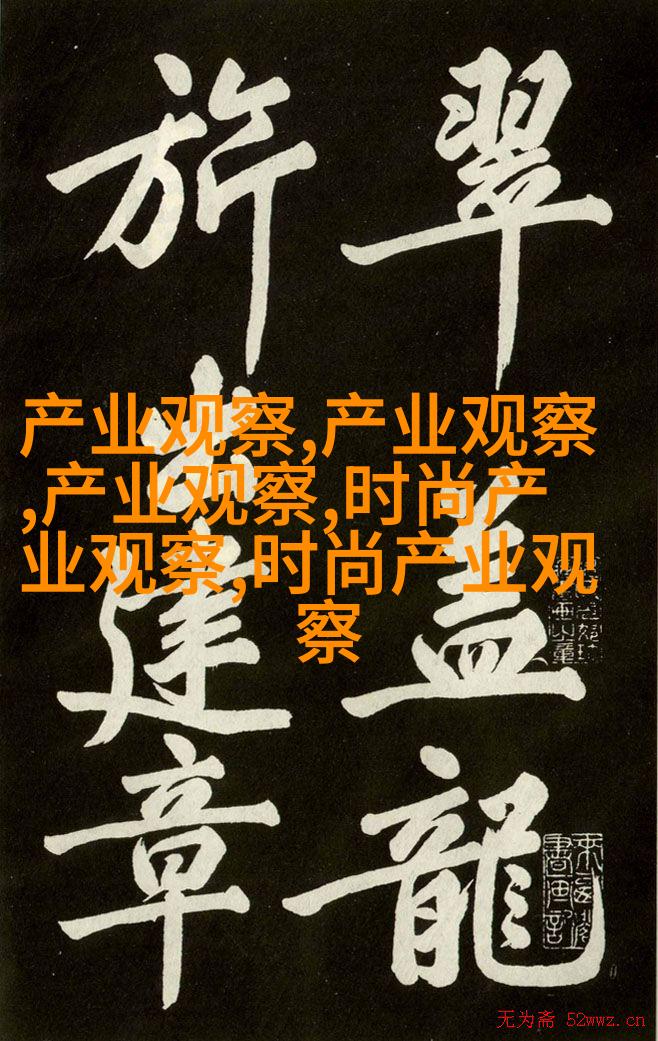 翠盖龍
旂出建章
产业观察,产业观察
,产业观察,时尚产
业观察,时尚产业观
察
无为斋 52wwz.cn